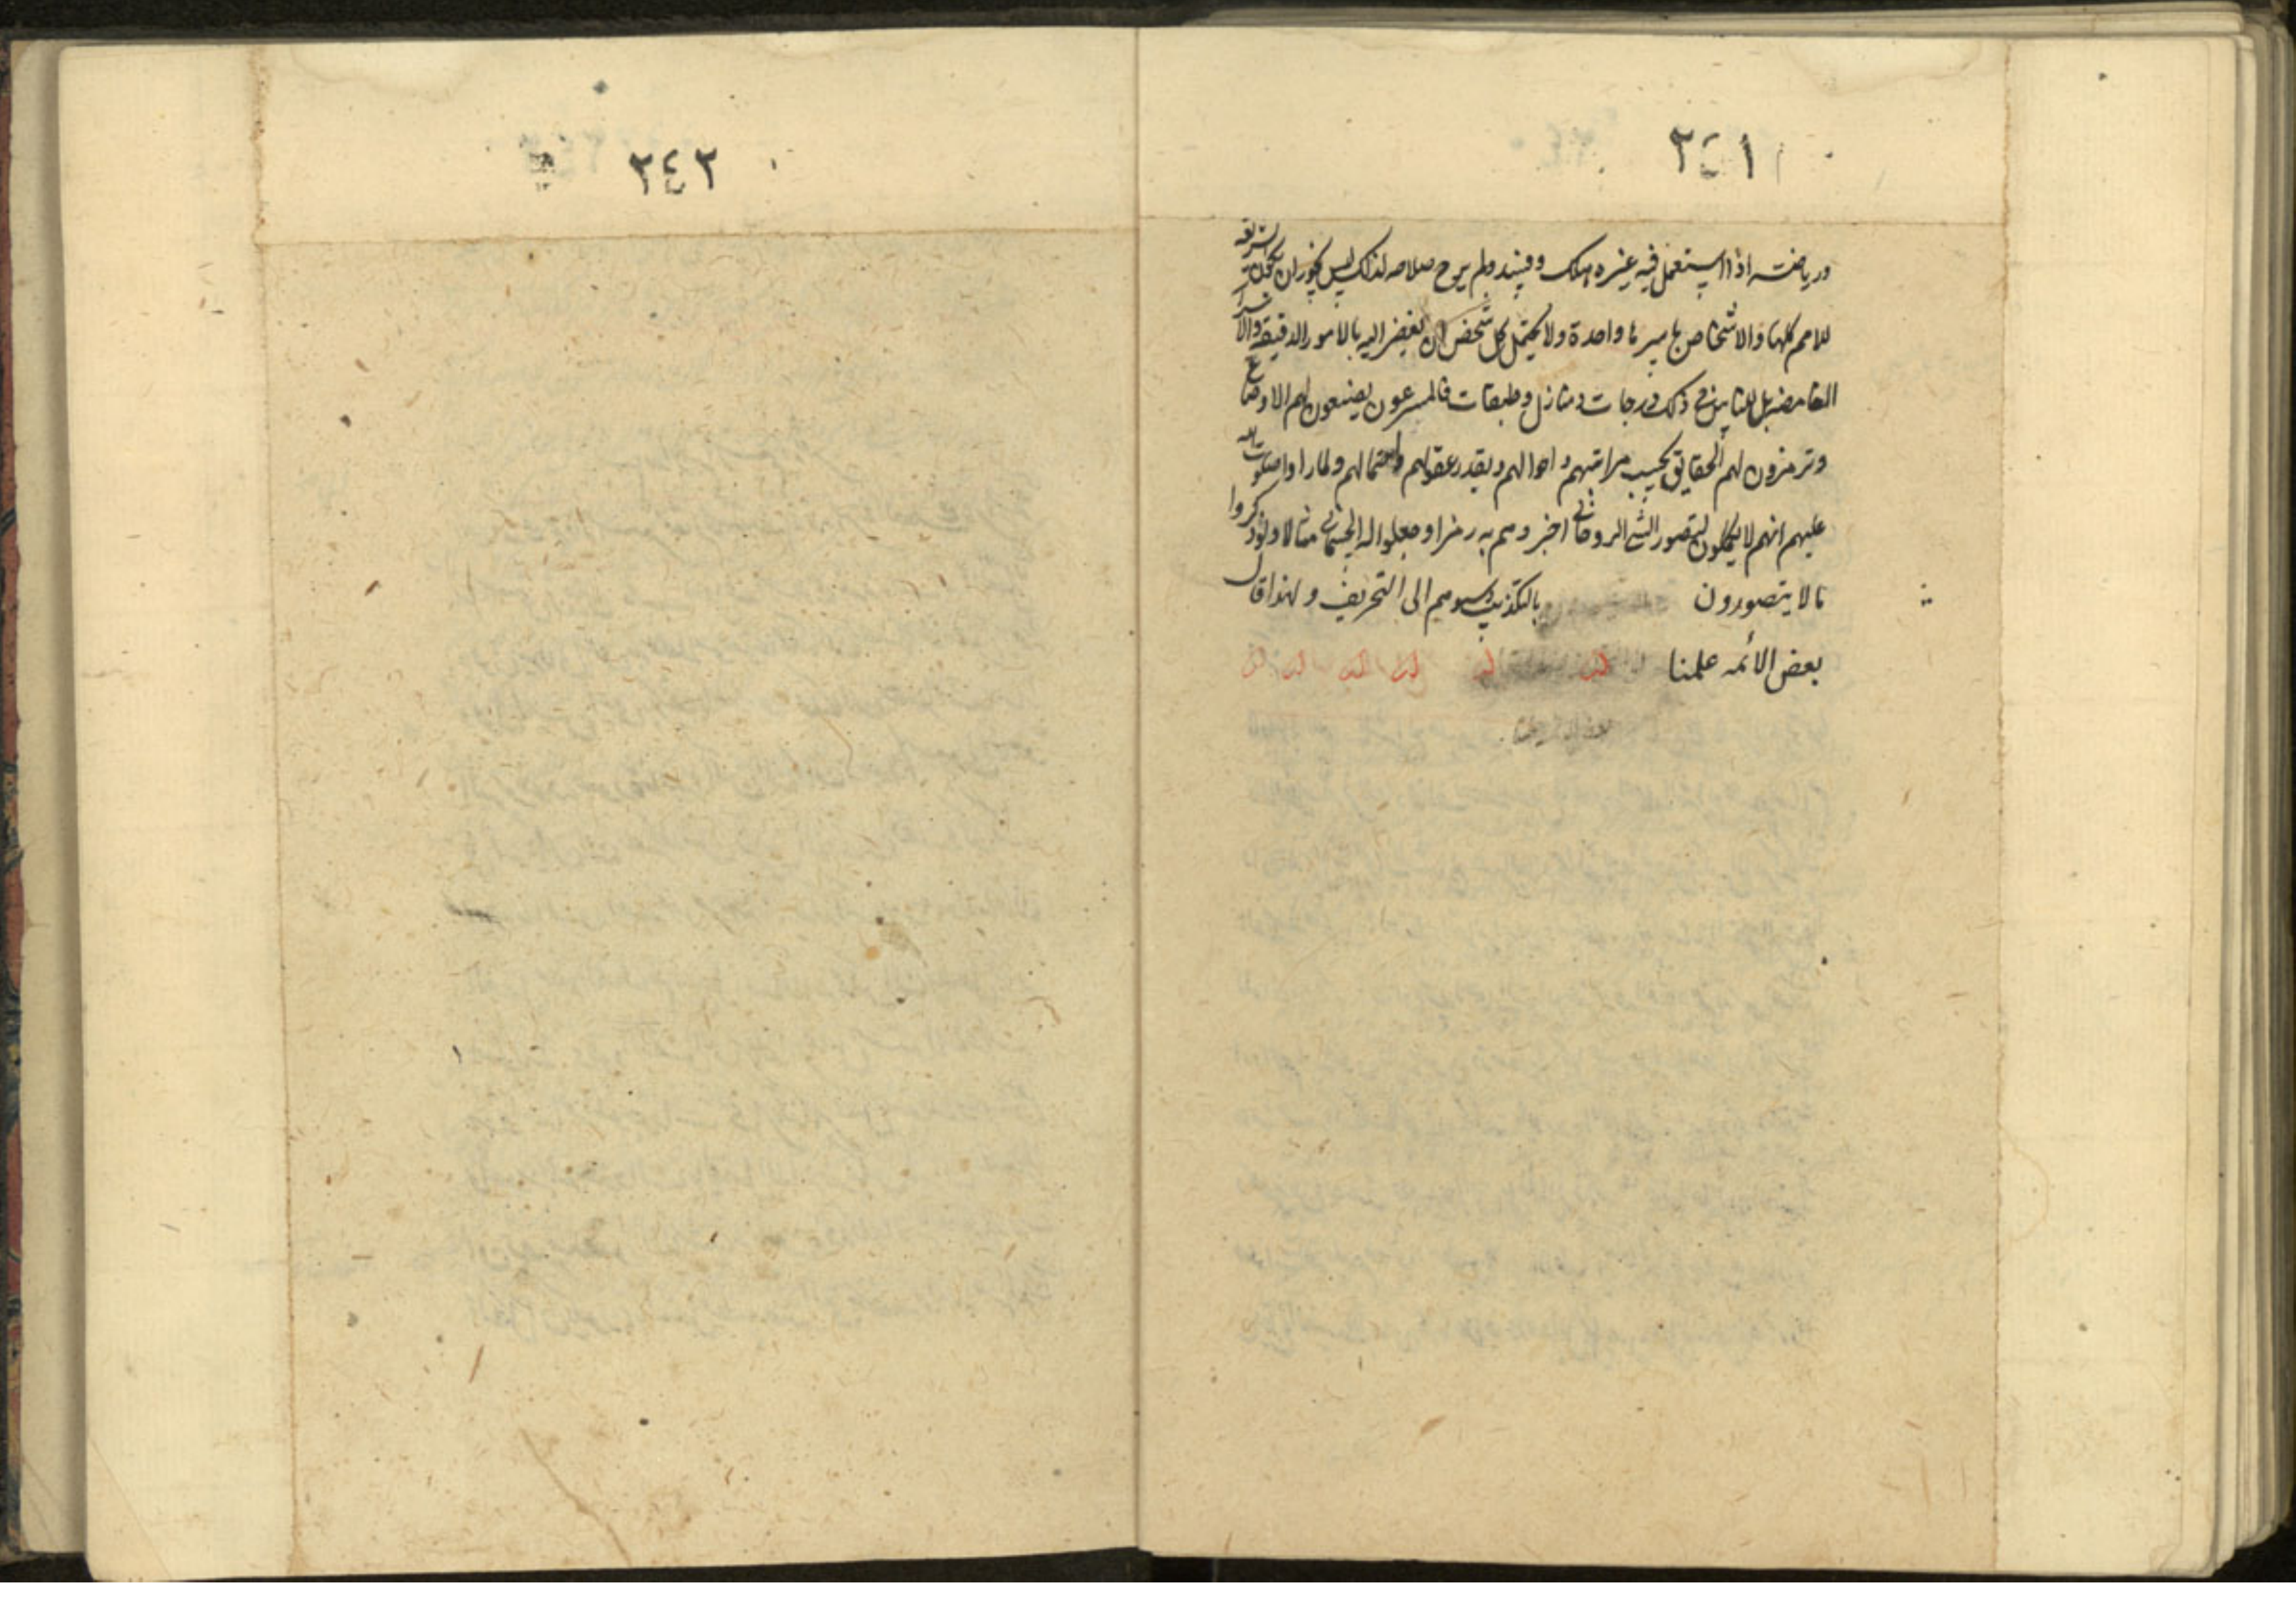 ٢٤١
ورياضت اذا استعمل فيه غيره هلك وفسد ولم يرج صلاحه لذلك ليس يجوز ان يكون الشريعة
للامم كلها والاشخاص باسرها واحدة ولا يحتمل كل شخص ان يفضى اليه بالامور الدقيقة والاسرار
الغامضة بل للناس فى ذلك درجات ومنازل وطبقات فالمسرعون يضعون لهم الاوضاع
وترمزون لهم الحقايق بحسب مراتبهم واحوالهم وبقدر عقولهم واحتمالهم ولما راوا
عليهم انهم لا يكملون لتصور الشى الروحانى اخبروهم به رمزا وجعلوا له الجسمانى مثالا ولو ذكروا
ما لا يتصورون بالتكذيب ونسبوهم الى التحريف ولهذا قال
بعض الأئمه علمنا
٢٤٢